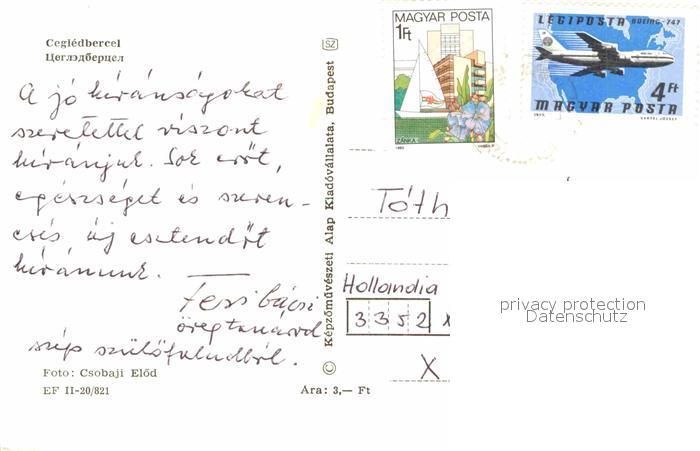 Ceglédbercel
Цеглэдберцел
A jó kívánságokat
szeretettel viszont
kívánjuk. Sok erőt,
egészséget és szeren-
csés új esztendőt
kívánunk.
Feri bácsi
öreg tanárod
szép szülőfaludból.
Foto: Csobaji Előd
EF II-20/821
Ára: 3,— Ft
SZ
© Képzőművészeti Alap Kiadóvállalata, Budapest
MAGYAR POSTA
1Ft
ZÁNKA
1983
LÉGIPOSTA BOEING-747
4 Ft
MAGYAR POSTA
1977
KERTÉL JÓZSEF
Tóth
Hollandia
3352 x
X
privacy protection
Datenschutz